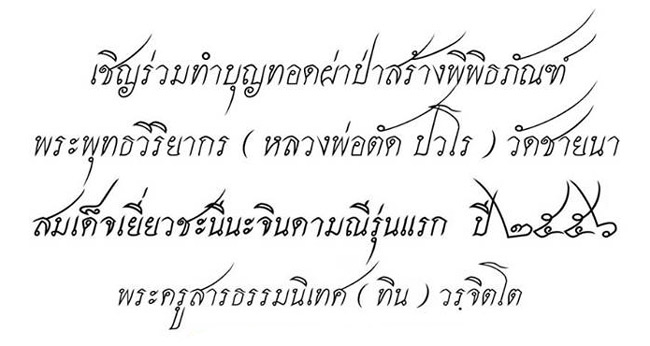 เชิญร่วมทำบุญทอดผ่าป่าสร้างพิพิธภัณฑ์
พระพุทธวิริยากร ( หลวงพ่อตัด ปวโร ) วัดชายนา
สมเด็จเยี่ยวชะนีนะจินดามณีรุ่นแรก ปี ๒๕๕๖
พระครูสารธรรมนิเทศ ( ทิน ) วรฺจิตโต